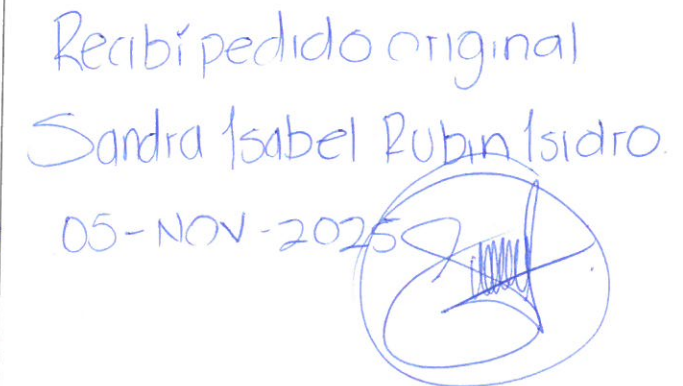 Recibí pedido original
Sandra Isabel Rubin Isidro.
05-NOV-2025